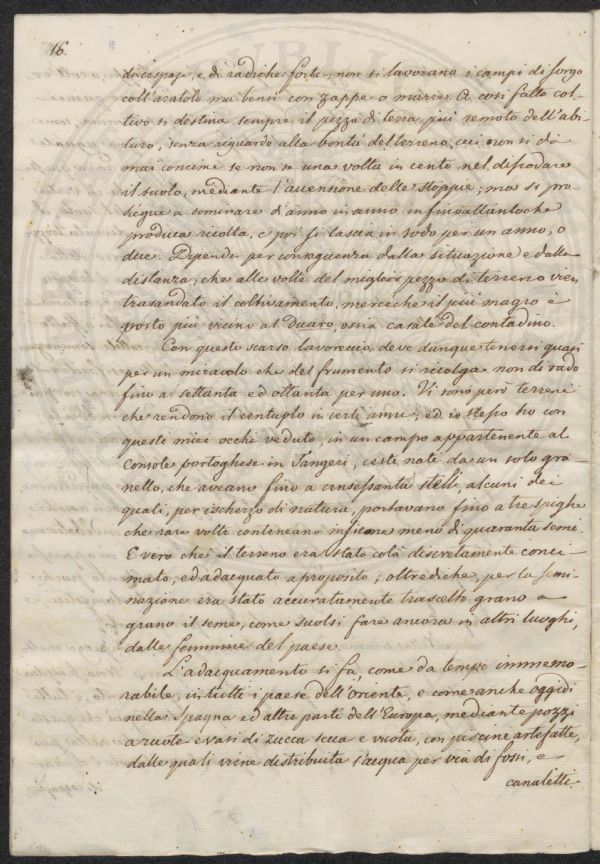 16.
di cespugi, e di radiche forti, non si lavorano i campi di sorgo
coll'aratolo ma bensì con zappe o marre. A così fatto col-
tivo si destina sempre il pezzo di terra più remoto dell'abi-
turo, senza riguardo alla bontà del terreno, cui non si dà
mai concime se non se una volta in cento nel disodare
il suolo, mediante l'accensione delle stoppie; ma si pro-
siegue a seminare d'anno in anno infinoattantoche
produca ricolta, e poi si lascia in sodo per un anno, o
due. Dipende per conseguenza dalla situazione e dalla
distanza, che alle volte del miglior pezzo di terreno vien
trasandato il coltivamento, merceche il più magro è
posto più vicino al Duaro, ossia casale del contadino.
Con questo scarso lavoreccio, deve dunque tenersi quasi
per un miracolo che del frumento si ricolga non di rado
fino a settanta ed ottanta per uno. Vi sono però terreni
che rendono il centuplo in certi anni; ed io stesso ho con
questi miei occhi veduto, in un campo appartenente al
Console portoghese in Tangeri, cesti nati da un solo gra-
nello, che aveano fino a censessanta steli, alcuni dei
quali, per ischerzo di natura, portavano fino a tre spighe
che rare volte conteneano insieme meno di quaranta semi.
E vero che il terreno era stato colà discretamente conci-
mato, ed adacquato a proposito; oltrediche, per la semi-
nazione era stato accuratamente trascelto grano a
grano il seme, come suolsi fare ancora in altri luoghi,
dalle femmine del paese.
L'adacquamento si fa, come da tempo immemo-
rabile, in tutti i paesi dell'Oriente, e come anche oggidì
nella Spagna ed altre parti dell'Europa, mediante pozzi
a ruote e vasi di zucca secca e vuota, con piscine artefatte,
dalle quali viene distribuita l'acqua per via di fossi, e
canaletti